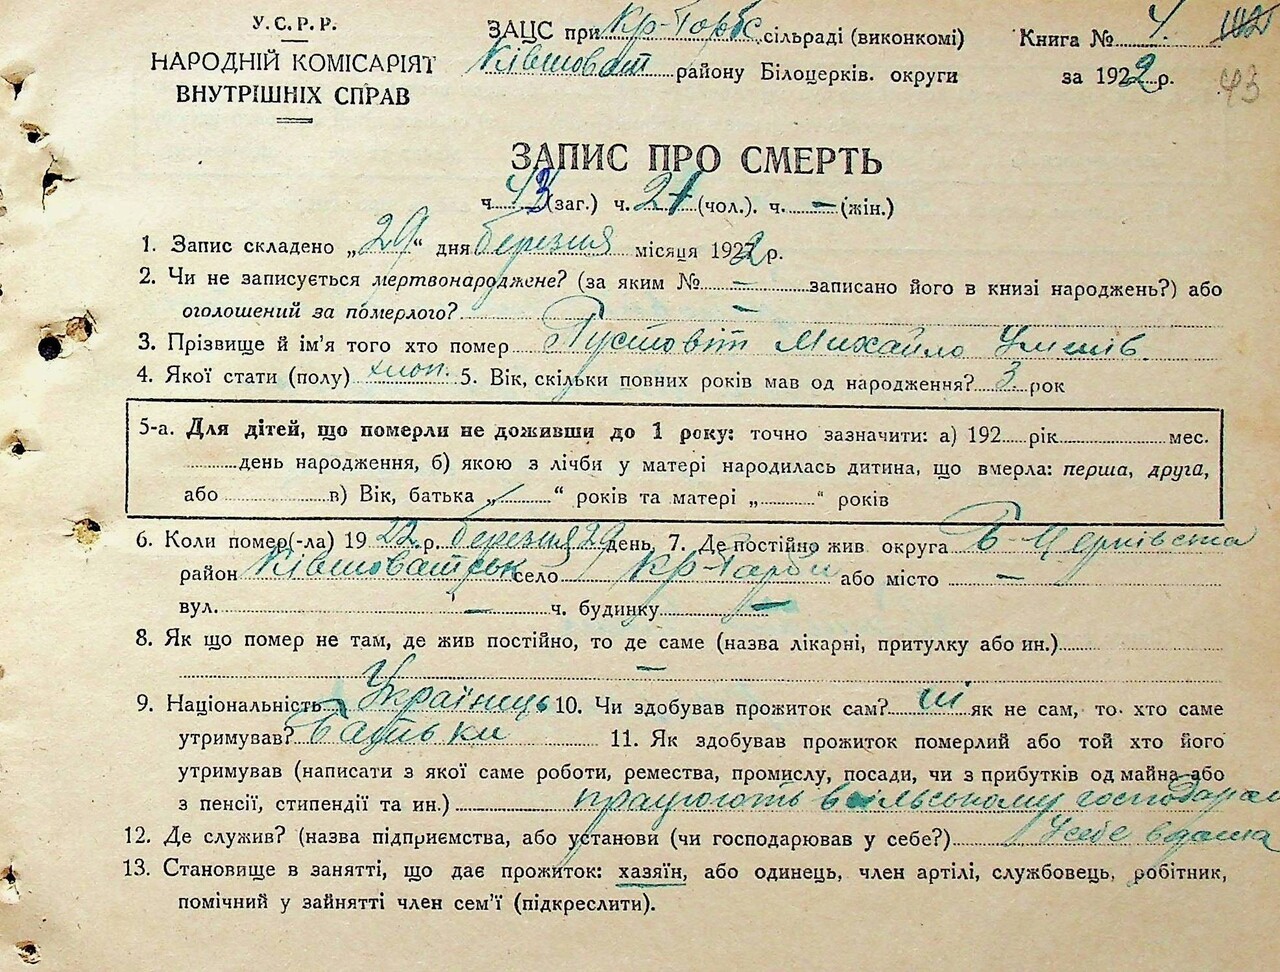 У.С.Р.Р.
НАРОДНІЙ КОМІСАРІЯТ
ВНУТРІШНІХ СПРАВ
ЗАЦС при Кр-Горбс. сільраді (виконкомі)
Ківшоват районy Білоцерків. округи
Книга № 4.
за 1922 р.
43
ЗАПИС ПРО СМЕРТЬ
ч. 43 (заг.) ч. 21 (чол.). ч. — (жін.)
1. Запис складено „29“ дня березня місяця 1922 р.
2. Чи не записується мертвонароджене? (за яким № — записано його в книзі народжень?) або
оголошений за померлого? —
3. Прізвище й ім'я того хто помер Пустовіт Михайло
4. Якої стати (полу) хлоп. 5. Вік, скільки повних років мав од народження? 3. рок
5-а. Для дітей, що померли не доживши до 1 року: точно зазначити: а) 192 рік мес.
день народження, б) якою з лічби у матері народилась дитина, що вмерла: перша, друга,
або в) Вік, батька „ “ років та матері „ “ років
6. Коли помер(-ла) 1922 р. березня 29 день, 7. Де постійно жив округа Б-Церківська
район Ківшоватськ село Кр-Гарби або місто —
вул. — ч. будинку —
8. Як що помер не там, де жив постійно, то де саме (назва лікарні, притулку або ин.)
—
9. Національність Українець 10. Чи здобував прожиток сам? ні як не сам, то хто саме
утримував? батьки 11. Як здобував прожиток померлий або той хто його
утримував (написати з якої саме роботи, ремества, промислу, посади, чи з прибутків од майна або
з пенсії, стипендії та ин.) працюють в сільському господарст
12. Де служив? (назва підприємства, або установи (чи господарював у себе?) У себе вдома
13. Становище в занятті, що дає прожиток: хазяїн, або одинець, член артілі, службовець, робітник,
помічний у зайнятті член сем'ї (підкреслити).